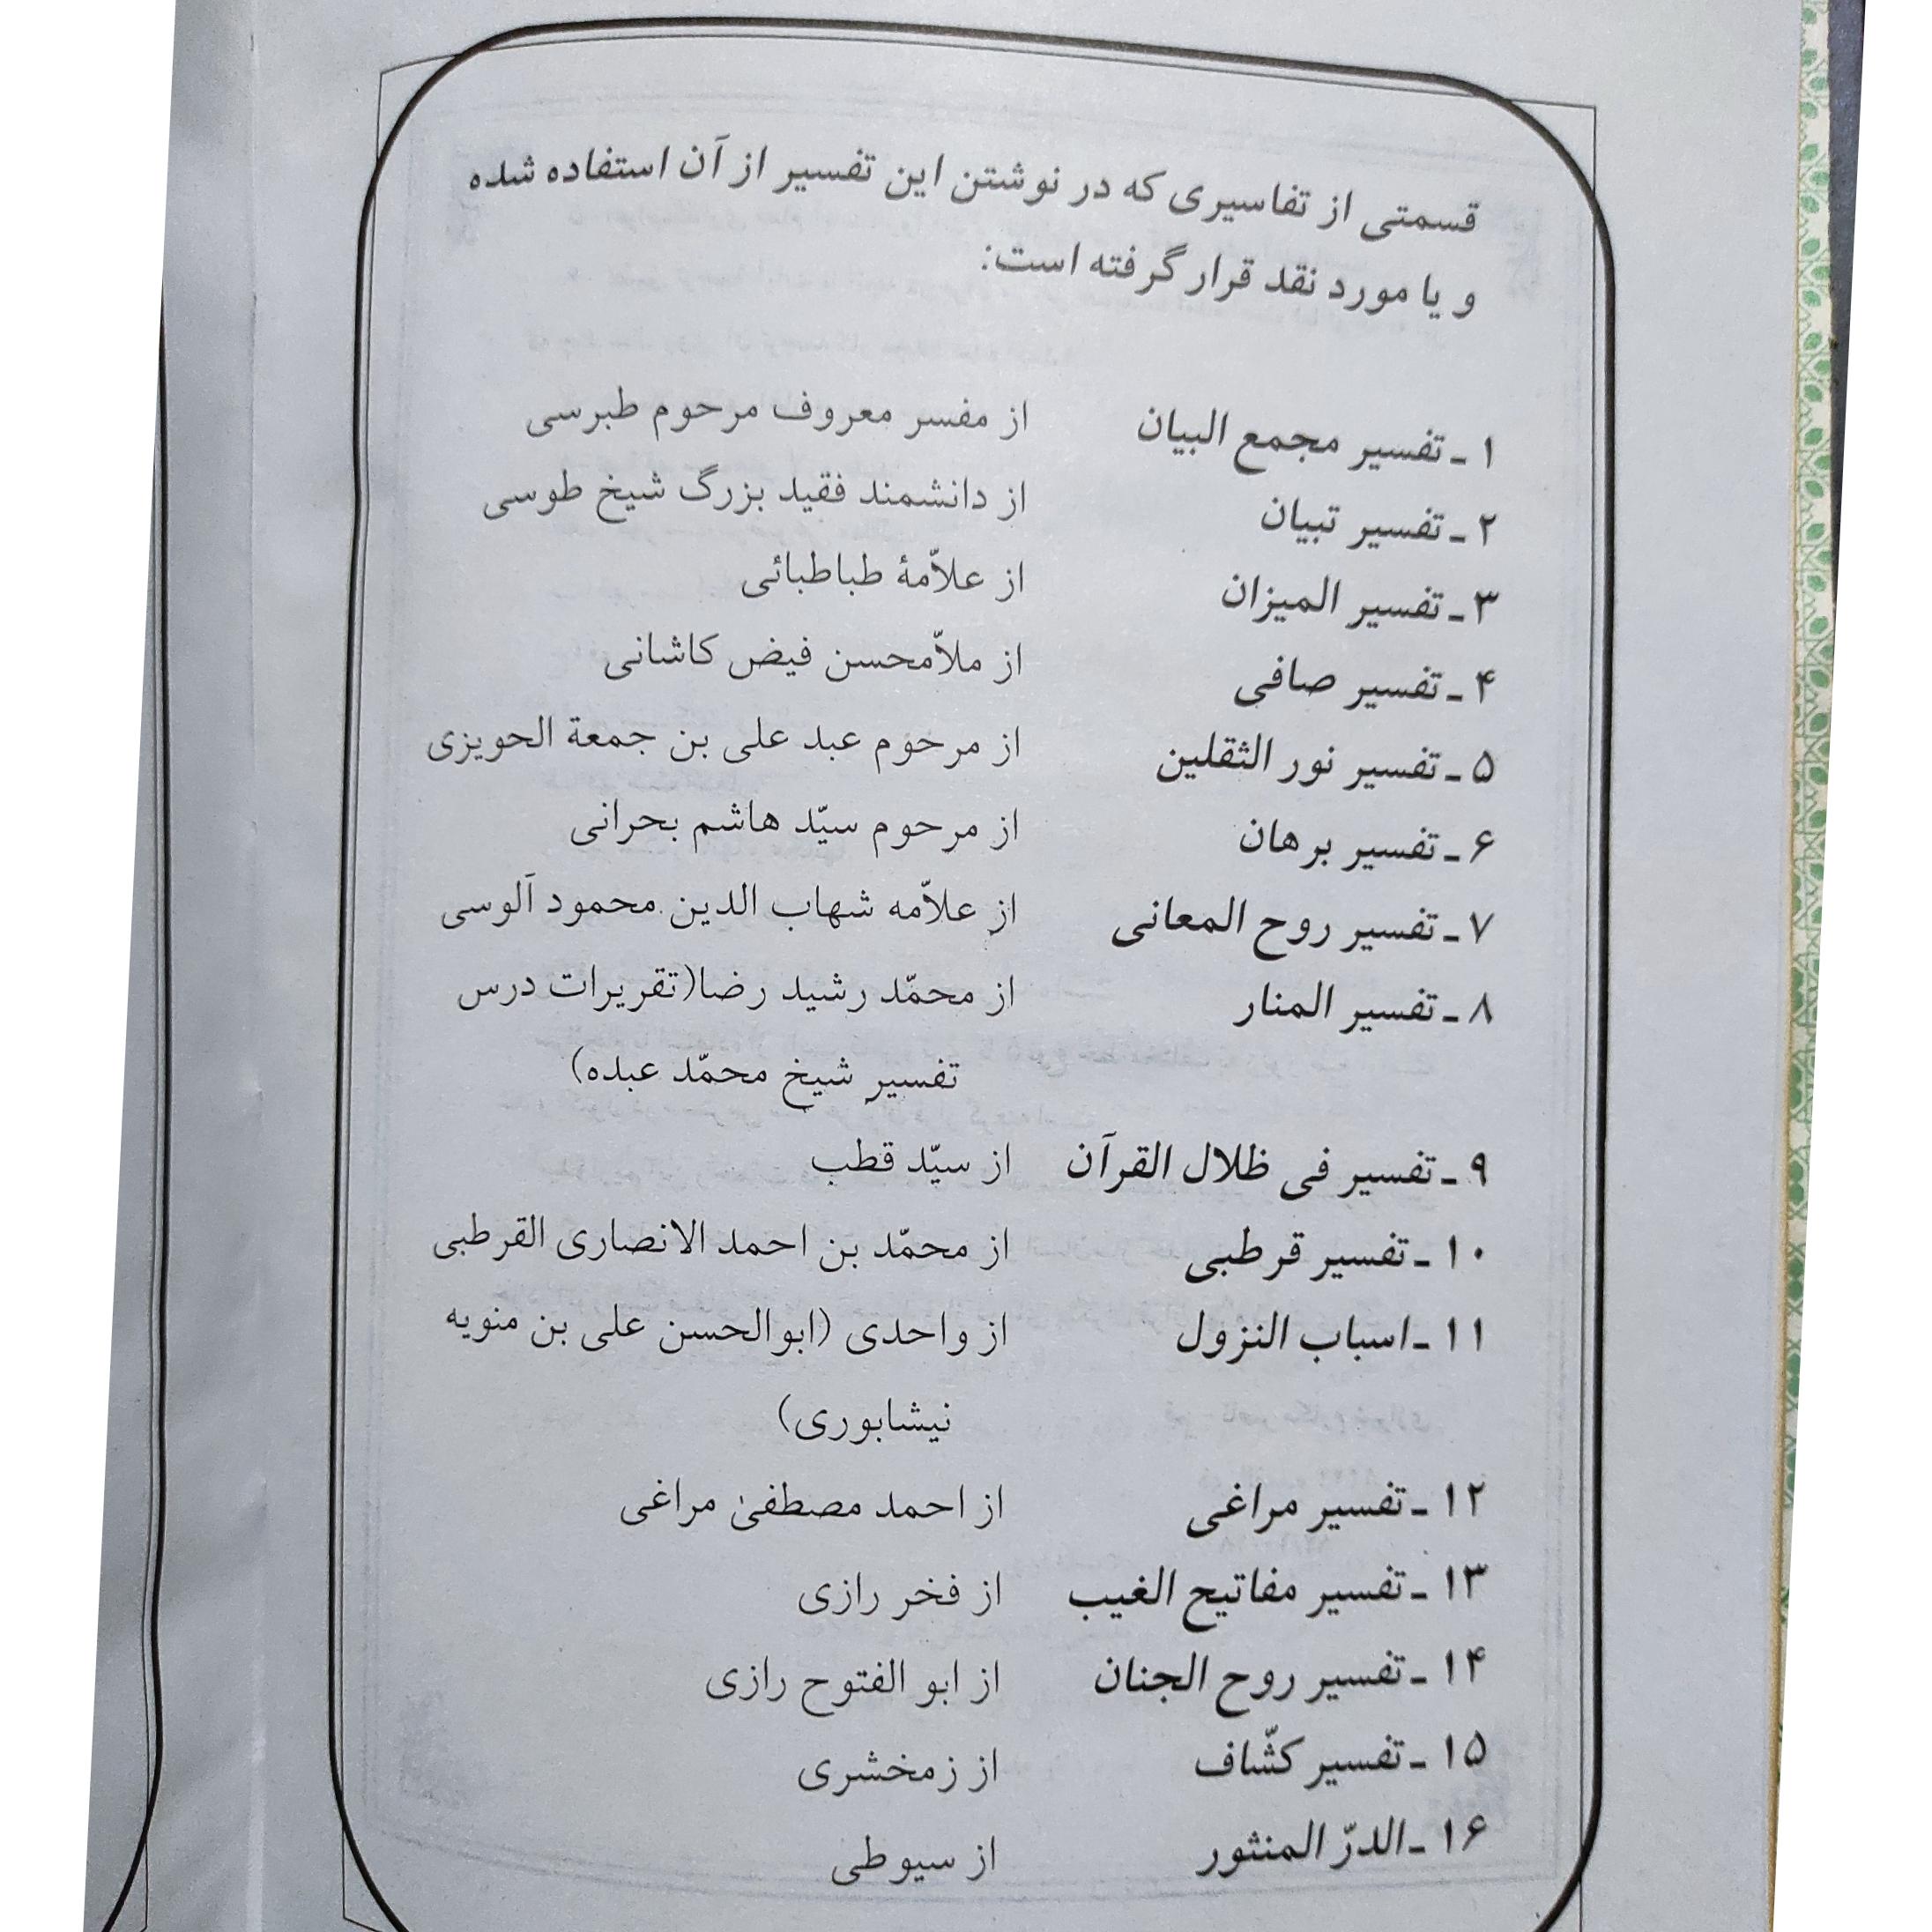 قسمتی از تفاسیری که در نوشتن این تفسیر از آن استفاده شده
و یا مورد نقد قرار گرفته است:
۱ ـ تفسیر مجمع البیان از مفسر معروف مرحوم طبرسی
۲ ـ تفسیر تبیان از دانشمند فقید بزرگ شیخ طوسی
۳ ـ تفسیر المیزان از علاّمهٔ طباطبائی
۴ ـ تفسیر صافی از ملاّمحسن فیض کاشانی
۵ ـ تفسیر نور الثقلین از مرحوم عبد علی بن جمعة الحویزی
۶ ـ تفسیر برهان از مرحوم سیّد هاشم بحرانی
۷ ـ تفسیر روح المعانی از علاّمه شهاب الدین محمود آلوسی
۸ ـ تفسیر المنار از محمّد رشید رضا(تقریرات درس
تفسیر شیخ محمّد عبده)
۹ ـ تفسیر فی ظلال القرآن از سیّد قطب
۱۰ ـ تفسیر قرطبی از محمّد بن احمد الانصاری القرطبی
۱۱ ـ اسباب النزول از واحدی (ابوالحسن علی بن منویه
نیشابوری)
۱۲ ـ تفسیر مراغی از احمد مصطفیٰ مراغی
۱۳ ـ تفسیر مفاتیح الغیب از فخر رازی
۱۴ ـ تفسیر روح الجنان از ابو الفتوح رازی
۱۵ ـ تفسیر کشّاف از زمخشری
۱۶ ـ الدرّ المنثور از سیوطی